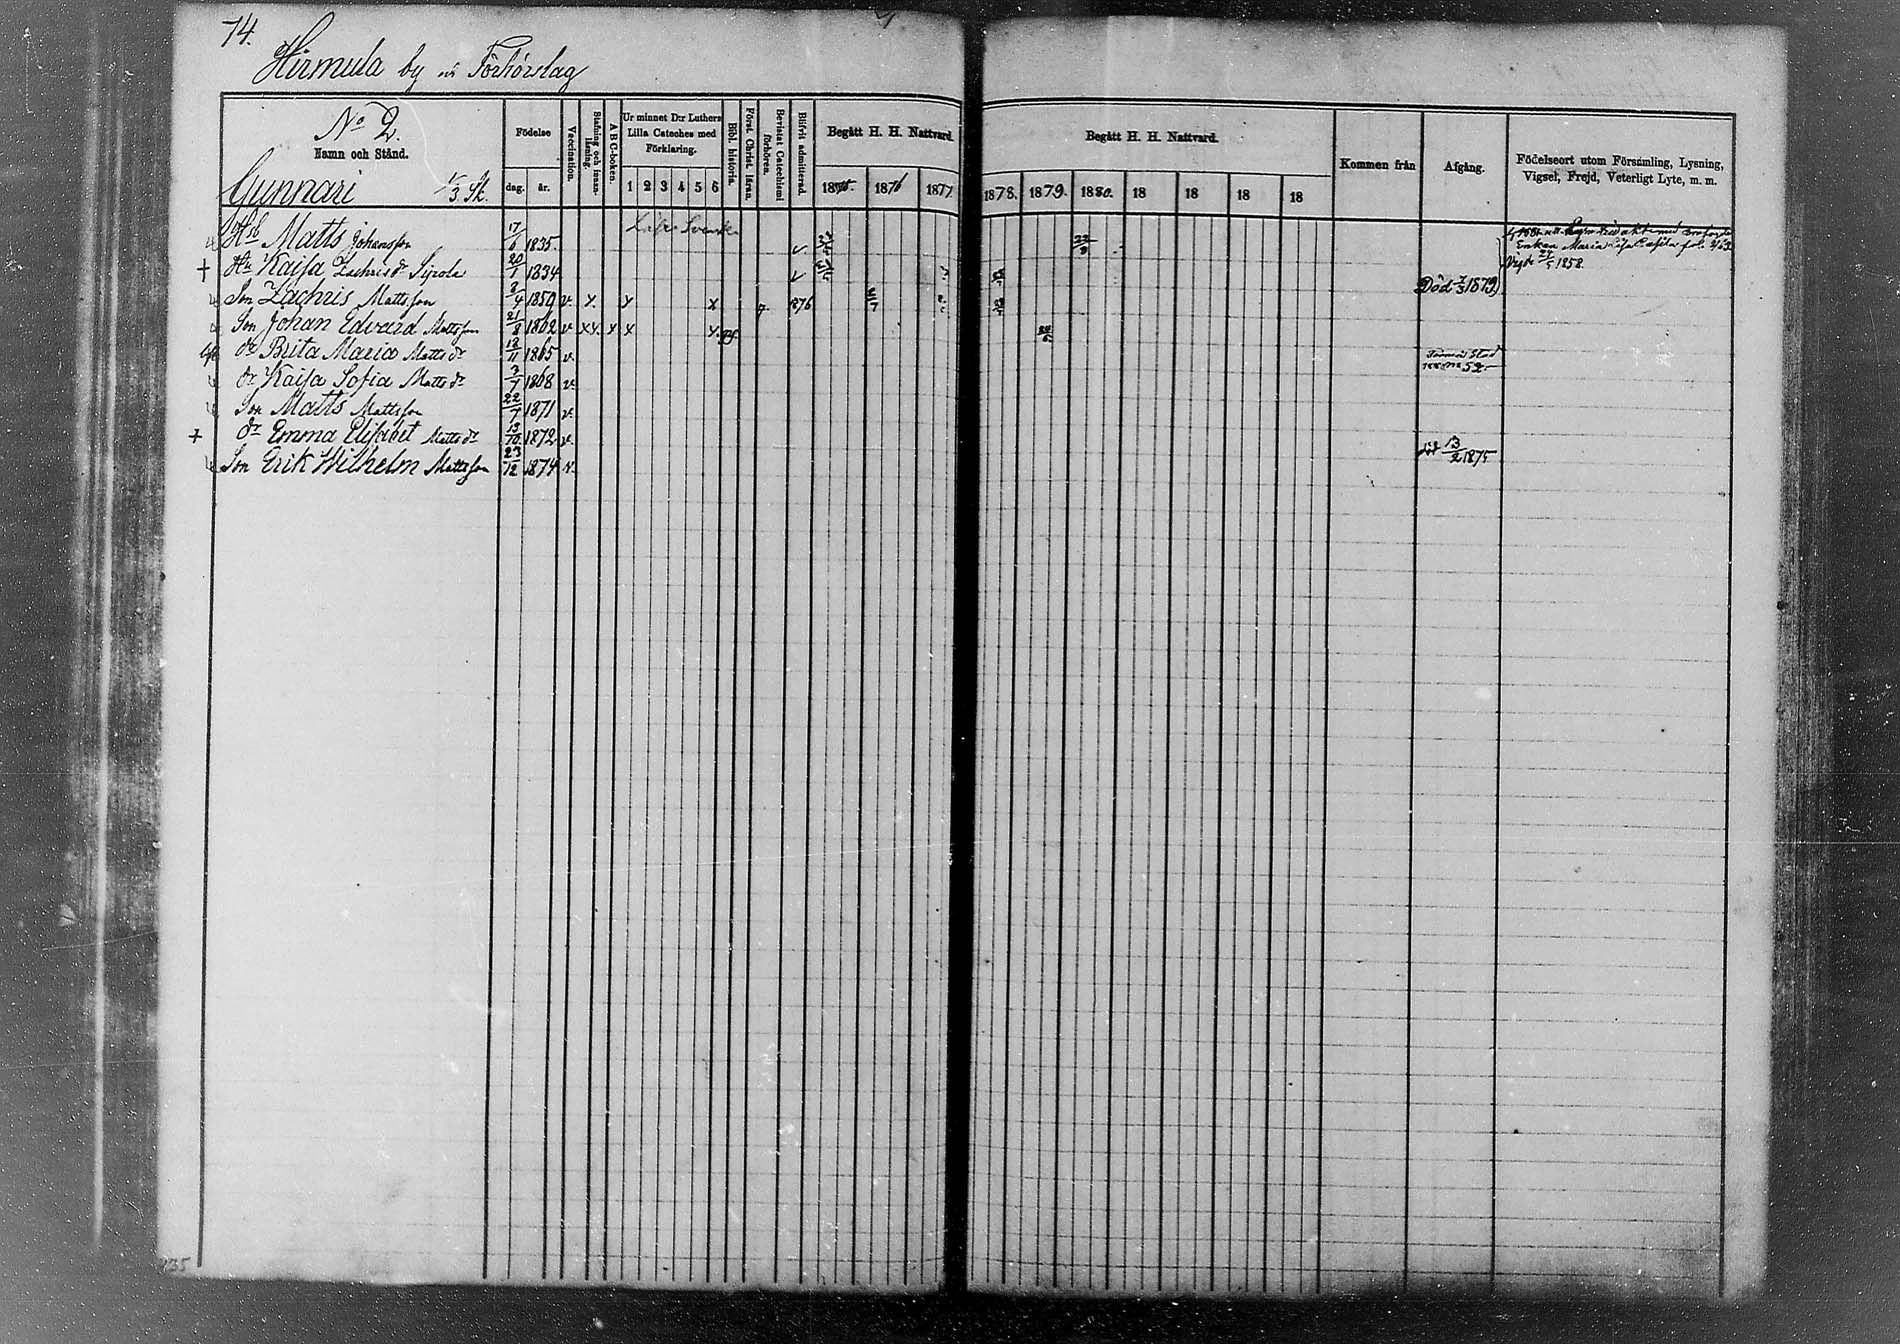 74.
Hirmula by Förhörslag
No 2.
Namn och Stånd.
Födelse
dag. år.
Vaccination.
Stafning och innanläsning.
A B C-boken.
Ur minnet D:r Luthers Lilla Cateches med Förklaring.
1 2 3 4 5 6
Bibl. historia.
Först. Christ. läran.
Bevistat Catechismi förhören.
Blifvit admitterad.
Begått H. H. Nattvard.
1875. 1876 1877
Begått H. H. Nattvard.
1878. 1879. 1880. 18 18 18 18
Kommen från
Afgång.
Födelseort utom Församling, Lysning, Vigsel, Frejd, Veterligt Lyte, m. m.
Gunnari 1/3
Läser Svenska
Hsb Matts Johansson 17/6 1835.
Enkan Maria
Vigde 1858.
+ Hu Kaisa Zachrisdr Sipola 20/1 1834 Död 7/3 1879
Son Zachris Mattsson 8/4 1859 v. x. x x 1876
Son Johan Edvard Mattsson 21/8 1862 v. x x. x x x.
dr Brita Maria Mattsdr 12/11 1865 v. 52
dr Kaisa Sofia Mattsdr 3/7 1868 v.
Son Matts Mattsson 22/7 1871 v.
+ dr Emma Elisabet Mattsdr 13/10 1872 v. död 13/2 1875
Son Erik Wilhelm Mattsson 23/12 1874 v.